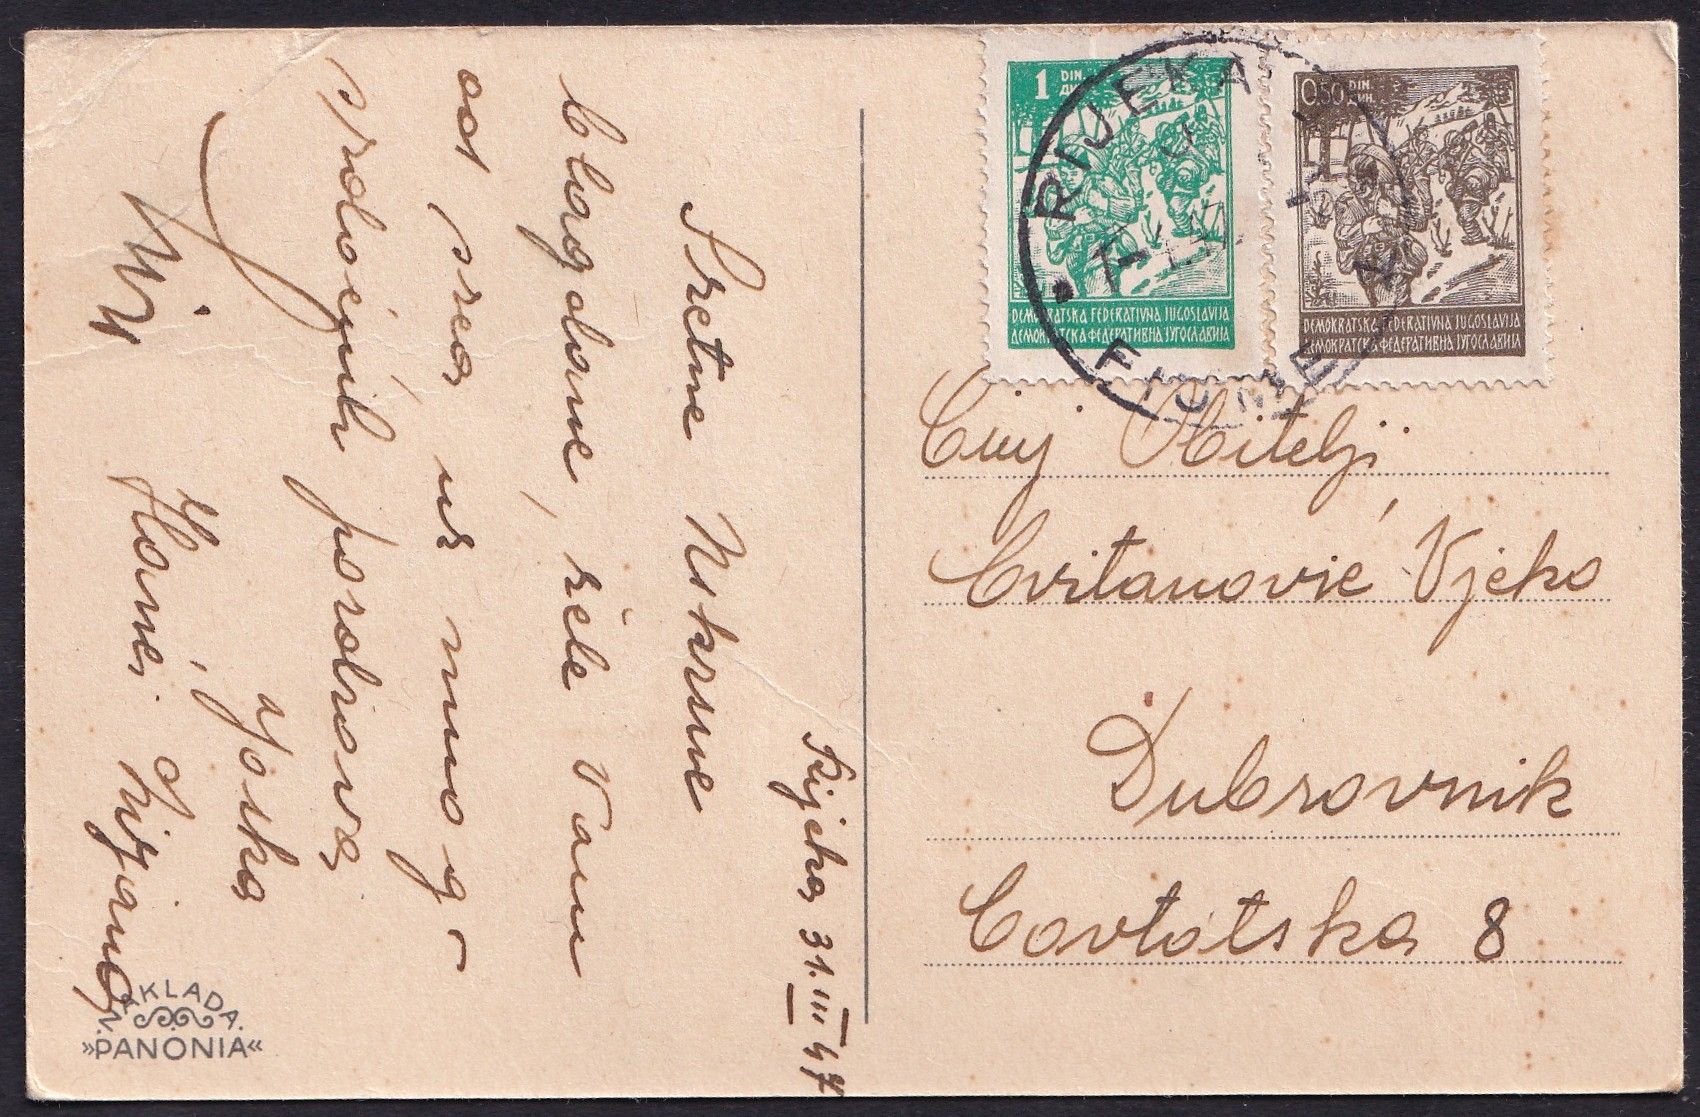 1 DIN. ДИН.
DEMOKRATSKA FEDERATIVNA JUGOSLAVIJA
ДЕМОКРАТСКА ФЕДЕРАТИВНА ЈУГОСЛАВИЈА
0,50 DIN. ДИН.
DEMOKRATSKA FEDERATIVNA JUGOSLAVIJA
ДЕМОКРАТСКА ФЕДЕРАТИВНА ЈУГОСЛАВИЈА
RIJEKA
FIUME
Rijeka, 31.III 47
Sretne Uskrsne
blagdane, žele Vam
od srca uz mnogo
srdačnih pozdrava
Joška
Cijenj Obitelji
Cvitanović Vjeko
Dubrovnik
Cavtatska 8
NAKLADA
»PANONIA«